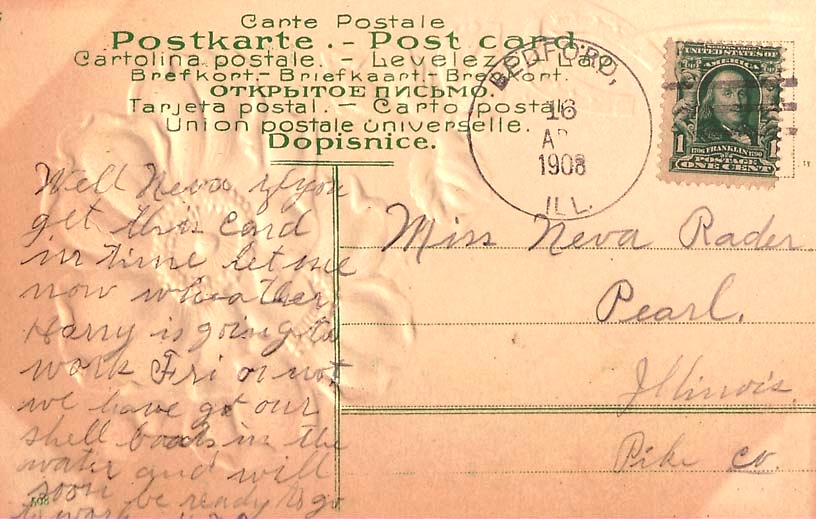 Carte Postale
Postkarte. - Post card.
Cartolina postale. - Levelező-Lap
Brefkort.- Briefkaart.- Brevkort.
ОТКРЫТОЕ ПИСЬМО.
Tarjeta postal. - Carto postal.
Union postale universelle.
Dopisnice.
BEDFORD,
16
AP
1908
ILL.
UNITED STATES OF
AMERICA
1706 FRANKLIN 1790
1
POSTAGE
ONE CENT
Well Neva if you
get this card
in time let me
now wheather
Harry is going to
work Fri or not
we have got our
shell boats in the
water and will
soon be ready to go
to work
508
Miss Neva Rader
Pearl.
Illinois.
Pike co.